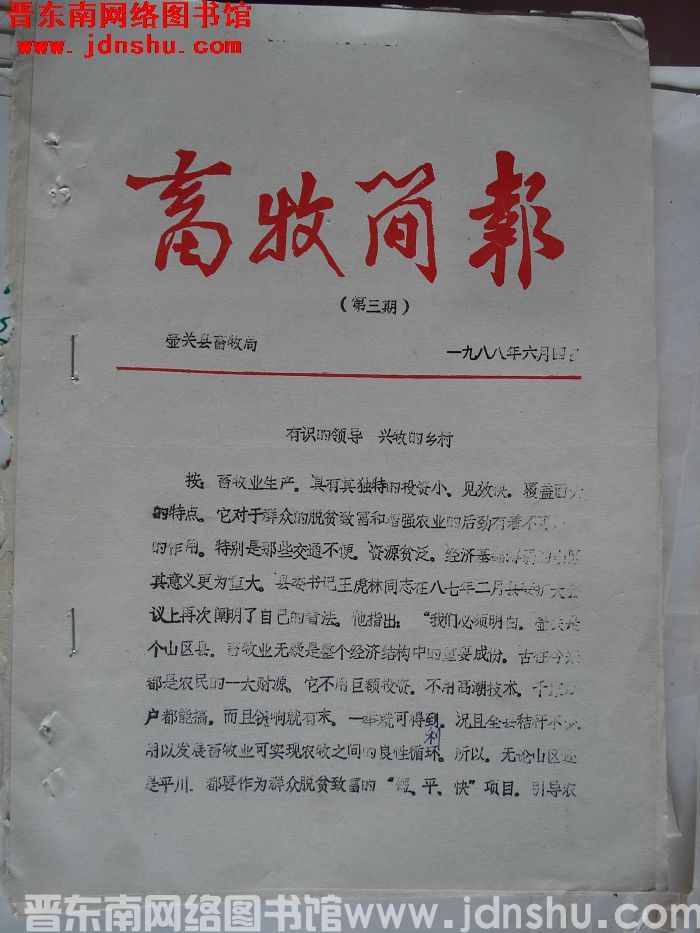 晋东南网络图书馆
www.jdnshu.com
畜牧简报
（第三期）
壶关县畜牧局 一九八八年六月四日
有识的领导 兴牧的乡村
按：畜牧业生产。具有其独特的投资小、见效快、覆盖面大
的特点。它对于群众的脱贫致富和增强农业的后劲有着不
的作用。特别是那些交通不便。资源贫乏。经济基础 的山区
其意义更为重大。县委书记王虎林同志在八七年二月县 扩大会
议上再次阐明了自己的看法。他指出：“我们必须明白。壶关是
个山区县。畜牧业无疑是整个经济结构中的重要成份。古往今来
都是农民的一大财源。它不用巨额投资。不用高潮技术。千家
户都能搞。而且 响就有来。一举 可得到。况且全县秸秆不
用以发展畜牧业可实现农牧之间的良性循环。所以。无论山区还
利
是平川．都要作为群众脱贫致富的“短、平、快”项目。引导农
晋东南网络图书馆www.jdnshu.com